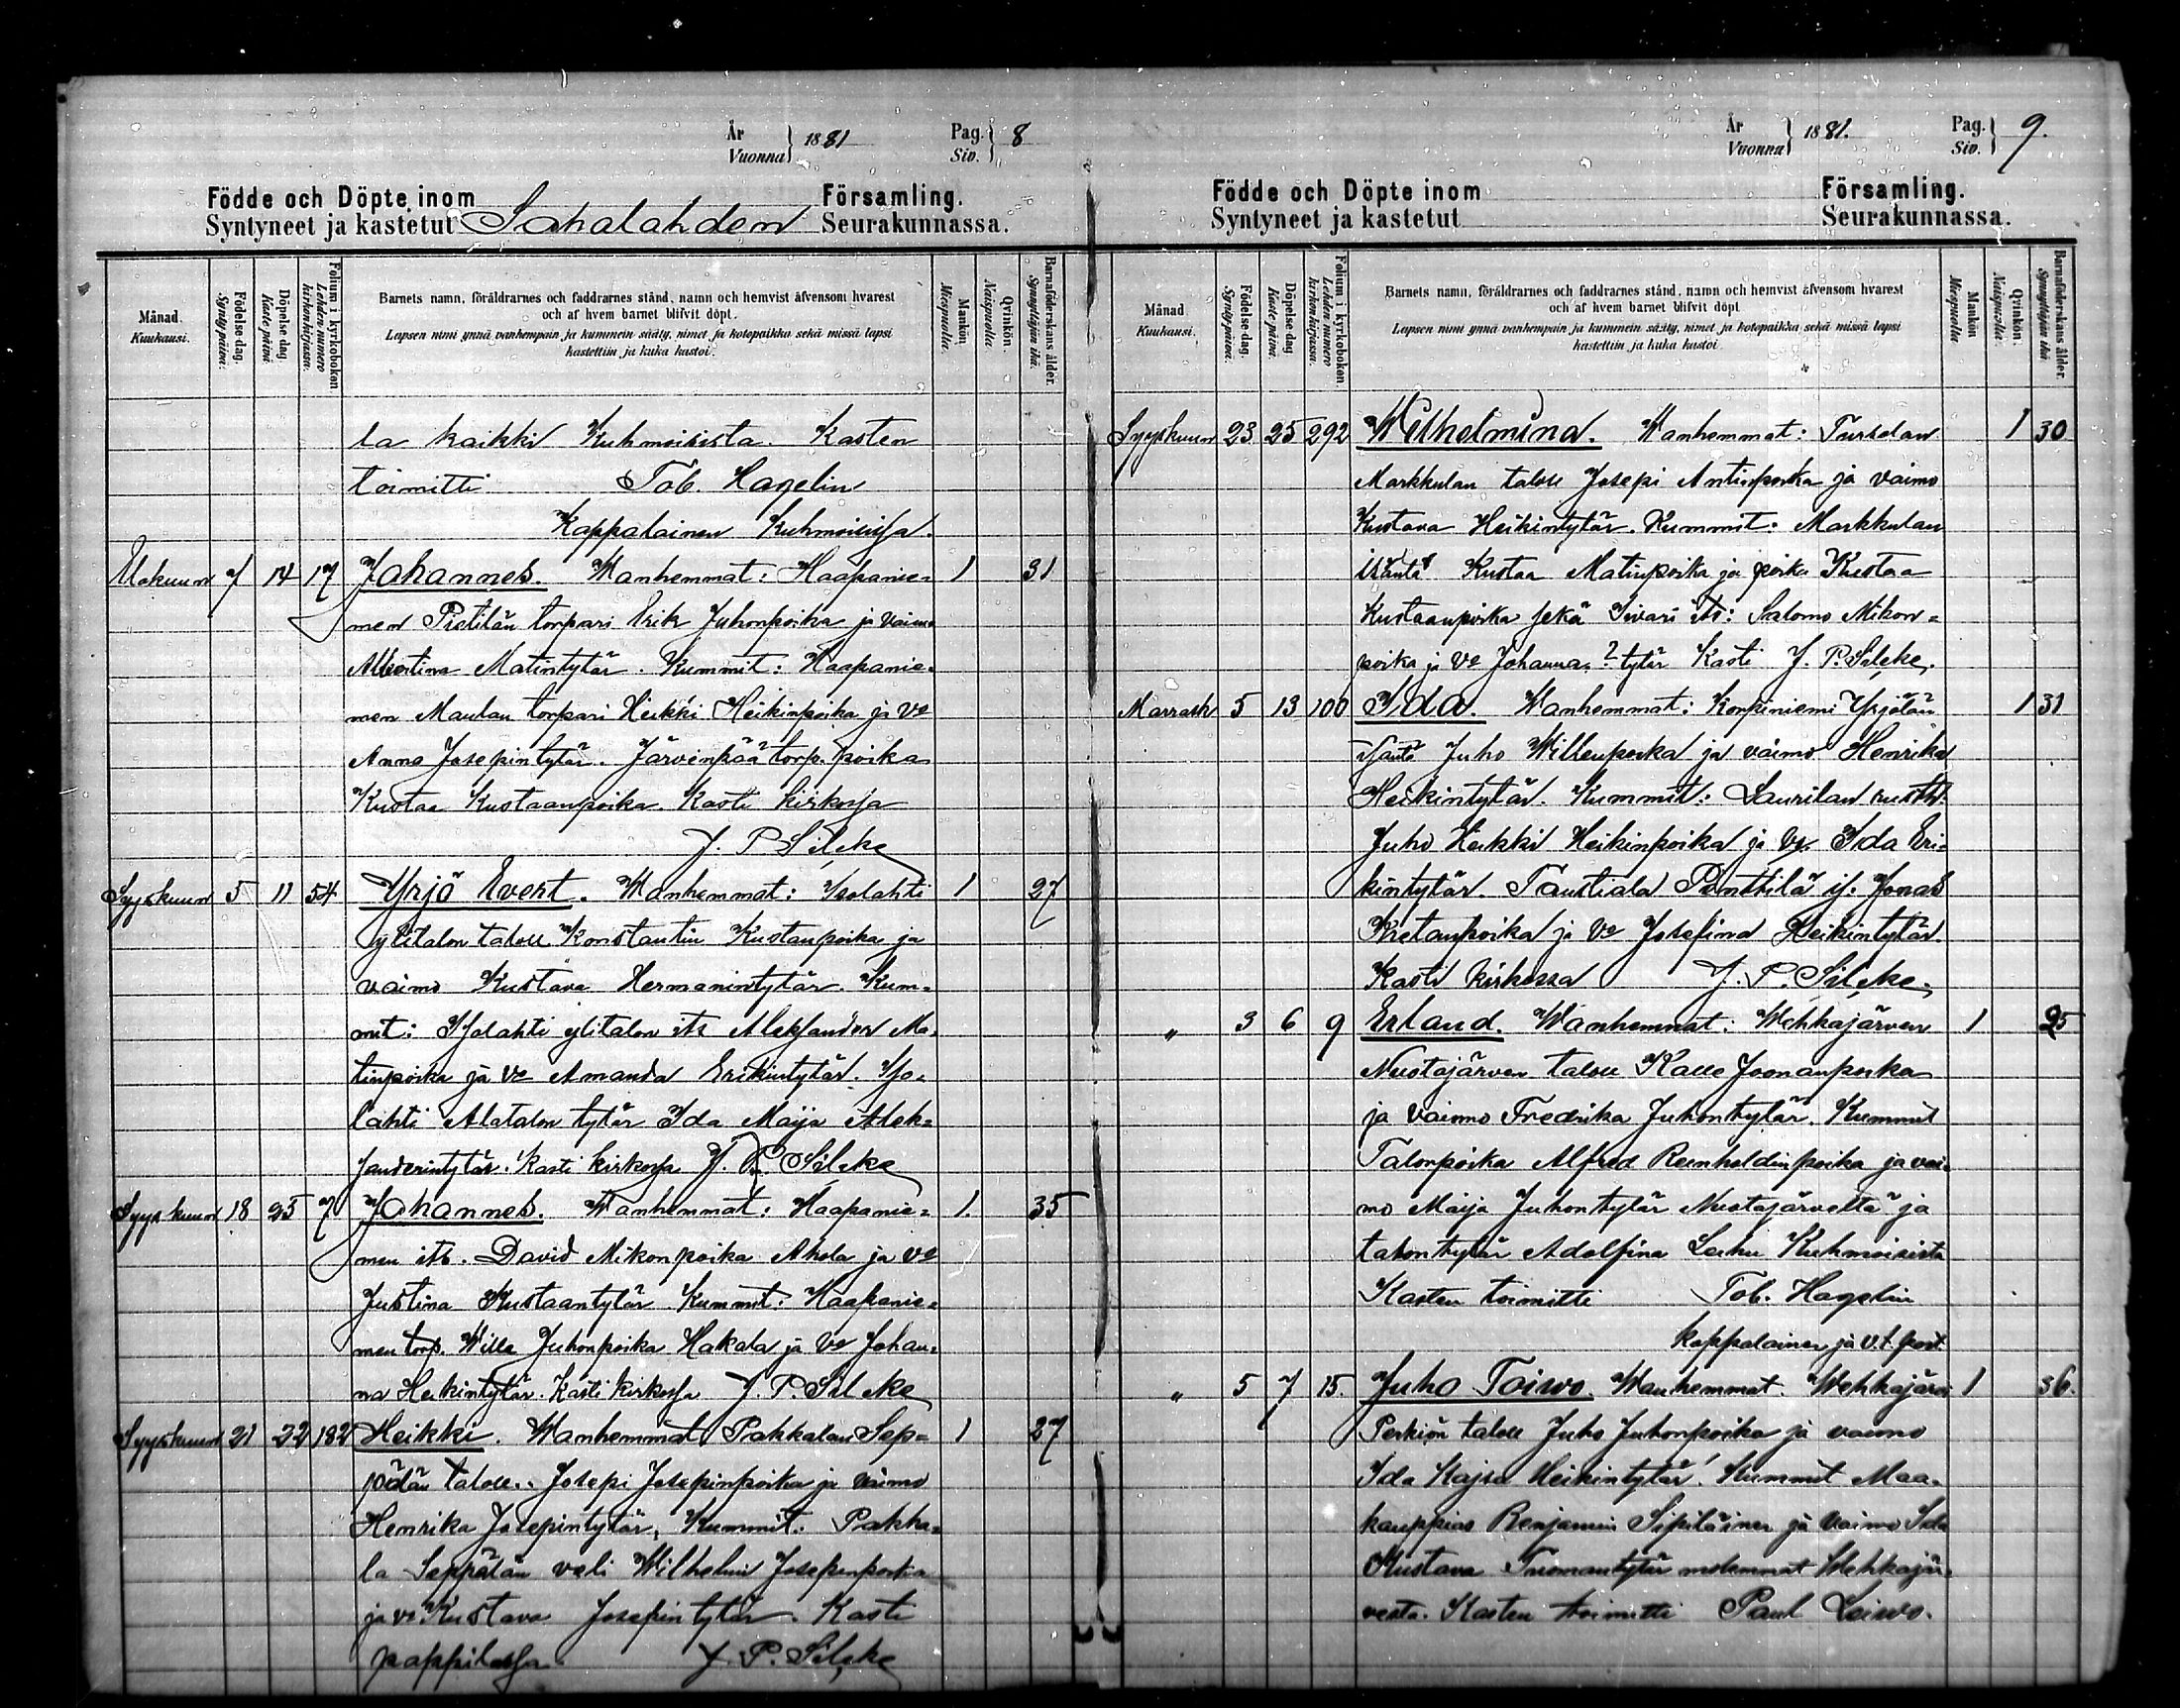 År
Vuonna } 1881 Pag.
Siv. } 8
Födde och Döpte inom Församling.
Syntyneet ja kastetut Sahalahden Seurakunnassa.
Månad.
Kuukausi.
Födelse-dag.
Synty-päivä.
Döpelse-dag.
Kaste-päivä.
Folium i kyrkoboken.
Lehden numero kirkonkirjassa.
Barnets namn, föräldrarnes och faddrarnes stånd, namn och hemvist äfvensom hvarest
och af hvem barnet blifvit döpt.
Lapsen nimi ynnä vanhempain ja kummein sääty, nimet ja kotopaikka sekä missä lapsi
kastettiin ja kuka kastoi.
Mankön.
Miespuolia.
Qvinkön.
Naispuolia.
Barnaföderskans ålder.
Synnyttäjän ikä.
la kaikki Kuhmoisista. Kasten
toimitti Tob. Hagelin
Kappalainen Kuhmoisissa.
Elokuun 7 14 17 Johannes. Wanhemmat: Haapanie= 1 31
men Pietilän torpari Erik Juhonpoika ja vaimo
Albertina Matintytär. Kummit: Haapanie=
men Maulan torpari Heikki Heikinpoika ja vo
Anna Josepintytär. Järvenpää torp. poika
Kustaa Kustaanpoika. Kasti kirkossa
J. P. Sileke
Syyskuun 5 11 54 Yrjö Evert. Wanhemmat: Isolahti 1 27
ylitalon talol. Konstantin Kustanpoika ja
vaimo Kustava Hermanintytär. Kum=
mit: Isolahti ylitalon its Aleksander Ma=
tinpoika ja vo Amanda Erikintytär. Iso=
lahti Alatalon tytär Ida Maija Alek=
sanderintytär. Kasti kirkossa J. P. Sileke
Syyskuun 18 25 7 Johannes. Wanhemmat: Haapanie= 1. 35
men its. David Mikonpoika Ahola ja vo
Justina Kustaantytär. Kummit: Haapanie=
men torp. Wille Juhonpoika Hakala ja vo Johan=
na Heikintytär. Kasti kirkossa J. P. Sileke
Syyskuun 21 22 182 Heikki. Wanhemmat Pakkalan Sep= 1 27
pälän talol. Josepi Josepinpoika ja vaimo
Henrika Josepintytär, Kummit: Pakka=
la Seppälän veli Wilhelm Josepinpoika
ja vo Kustava Josepintytär. Kasti
pappilassa J. P. Sileke
År
Vuonna } 1881. Pag.
Siv. } 9.
Födde och Döpte inom Församling.
Syntyneet ja kastetut Seurakunnassa.
Månad
Kuukausi.
Födelse-dag.
Synty-päivä.
Döpelse-dag
Kaste-päivä.
Folium i kyrkoboken.
Lehden numero kirkonkirjassa.
Barnets namn, föräldrarnes och faddrarnes stånd, namn och hemvist äfvensom hvarest
och af hvem barnet blifvit döpt
Lapsen nimi ynnä vanhempain ja kummein sääty, nimet ja kotopaikka sekä missä lapsi
kastettiin ja kuka kastoi
Mankön
Miespuolia
Qvinkön.
Naispuolia.
Barnaföderskans ålder.
Synnyttäjän ikä
Syyskuun 23 25 292 Wilhelmina. Wanhemmat: Tursolan 1 30
Markkulan talol Josepi Antinpoika ja vaimo
Kustava Heikintytär. Kummit: Markkulan
isäntä Kustaa Matinpoika ja poika Kustaa
Kustaanpoika sekä Iivari its: Salomo Mikon=
poika ja vo Johanna ? tytär Kasti J. P. Sileke.
Marrask 5 13 100 Ida. Wanhemmat: Korpiniemi Yrjölän 1 31
isäntä Juho Willenpoika ja vaimo Henrika
Heikintytär. Kummit: Laurilan rusth.
Juho Heikki Heikinpoika ja vo Ida Eri=
kintytär. Taustiala Penttilä is. Jonas
Kustanpoika ja vo Josefina Heikintytär.
Kasti kirkossa J. P. Sileke.
" 3 6 9 Erland. Wanhemmat: Wehkajärven 1 25
Nuotajärven talol Kalle Joonanpoika
ja vaimo Fredrika Juhontytär. Kummit
Talonpoika Alfred Reinholdinpoika ja vai=
mo Maija Juhontytär Nuotajärveltä ja
talontytär Adolfina Kuhmoisista
Kasten toimitti Tob. Hagelin
kappalainen ja v.t. past
" 5 7 15. Juho Toiwo. Wanhemmat. Wehkajärvi 1 36.
Perkiön talol Juho Juhonpoika ja vaimo
Ida Kajsa Heikintytär. Kummit Maa=
kauppias Benjamin Sipiläinen ja vaimo Ida
Kustava Tuomantytär molemmat Wehkajär=
vesta. Kasten toimitti Paul Loiwo.